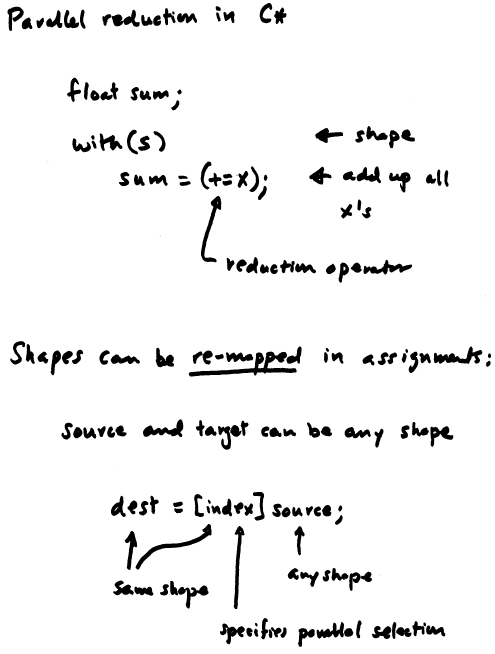 Parallel reduction in C*
float sum;
with(s) ← shape
sum = (+=x); ← add up all
x's
reduction operator
Shapes can be re-mapped in assignments:
source and target can be any shape
dest = [index] source;
same shape
any shape
specifies parallel selection